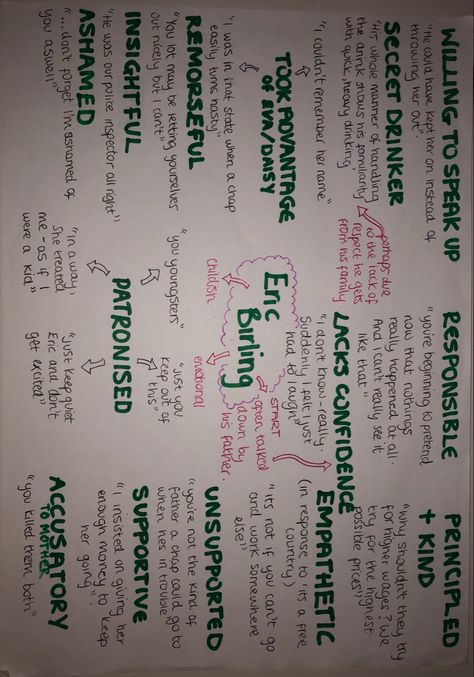 WILLING TO SPEAK UP
"He could have kept her on instead of
throwing her out".
SECRET DRINKER
"His whole manner of handling
the drink shows his familiarity
with quick, heavy drinking
perhaps due
to the lack of
respect he gets
from his family
TOOK ADVANTAGE
OF EVA/DAISY
"I couldn't remember her name"
"I was in that state when a chap
easily turns nasty"
REMORSEFUL
"You lot may be letting yourselves
out nicely but I can't"
INSIGHTFUL
"He was our police inspector all right"
ASHAMED
"... don't forget I'm ashamed of
you aswell"
RESPONSIBLE
"you're beginning to pretend
now that nothings
really happened at all.
And I can't really see it
like that"
LACKS CONFIDENCE
"I don't know - really.
Suddenly I felt I just
had to laugh"
Eric
Birling
START
often talked
down by
his father.
childish
emotional
"you youngsters"
"Just you
keep out of
this"
PATRONISED
"In a way,
She treated
me - as if I
were a kid"
"Just keep quiet
Eric and don't
get excited"
PRINCIPLED
+ KIND
"Why shouldn't they try
for higher wages? We
try for the highest
possible prices"
EMPATHETIC
(in response to: its a free
country)
"it's not if you can't go
and work somewhere
else"
UNSUPPORTED
"you're not the kind of
father a chap could go to
when hes in trouble"
SUPPORTIVE
"I insisted on giving her
enough money to keep
her going".
ACCUSATORY
TO MOTHER
"you killed them both"